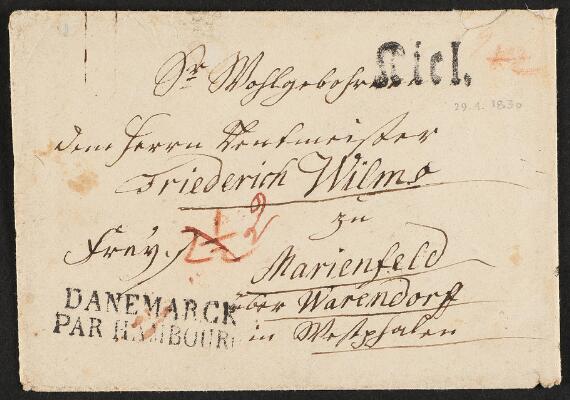 Kiel.
29.1.1830
Sr Wohlgebohren
dem Herrn Rentmeister
Friederich Wilms
zu
Frey.
2
Marienfeld
über Warendorff
in Westphalen
DANEMARCK
PAR HAMBOURG